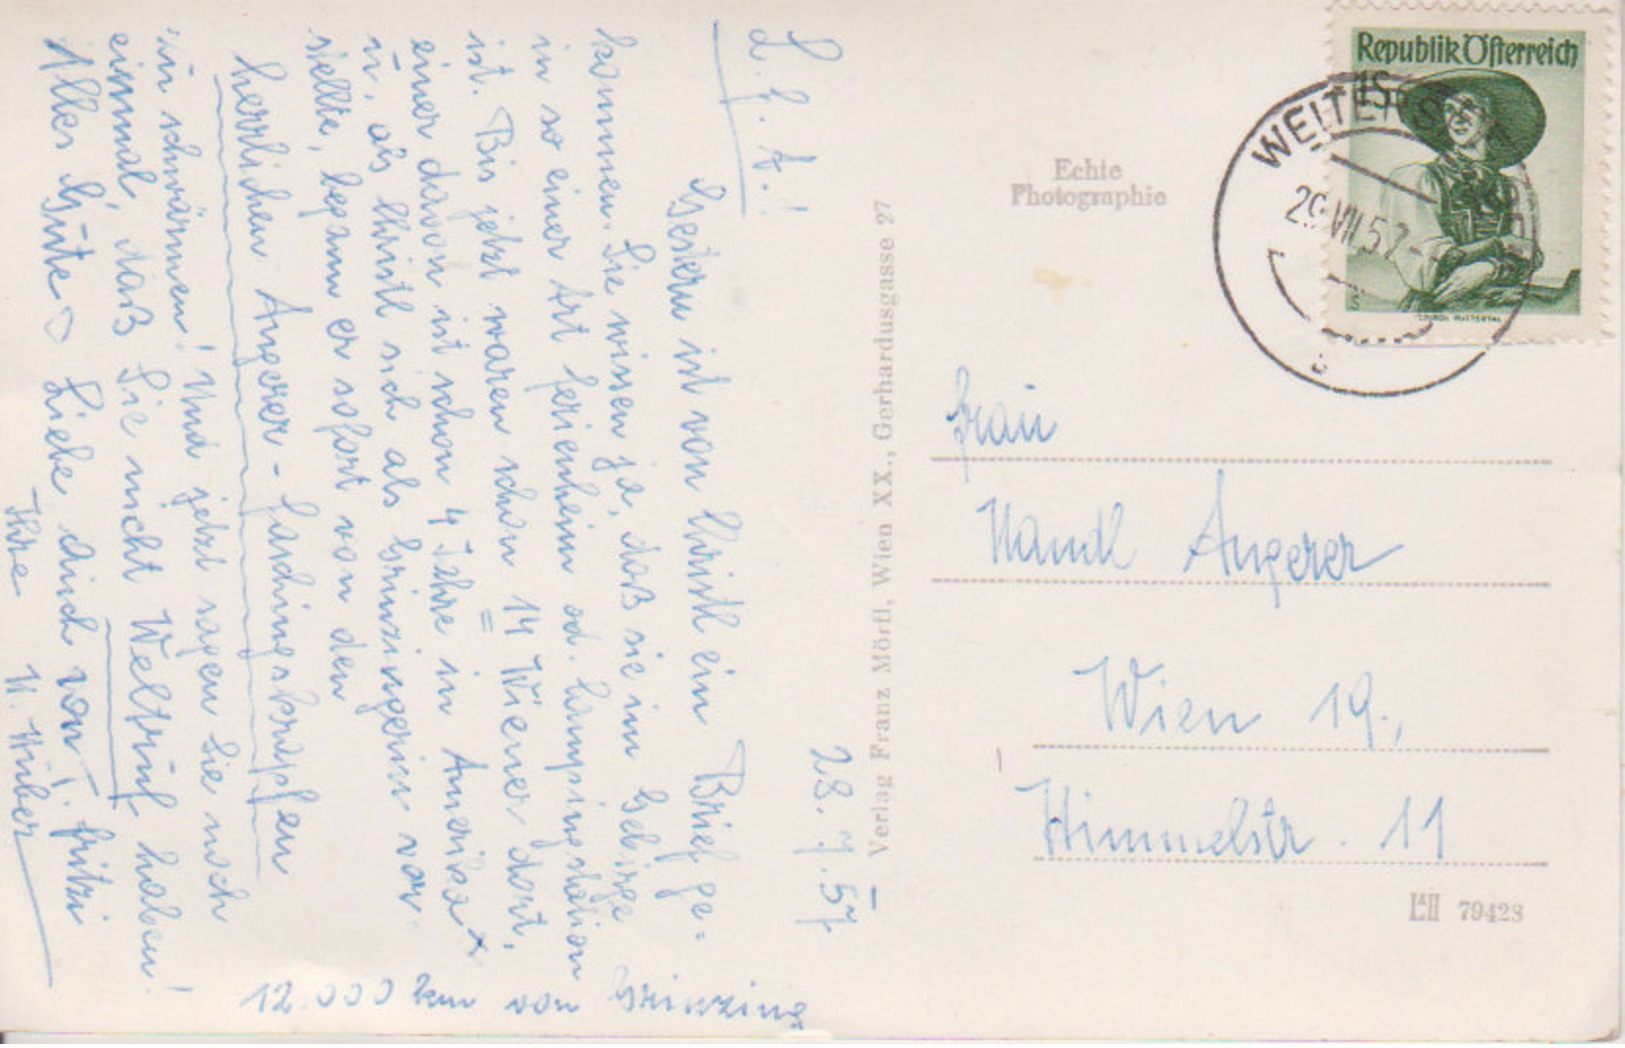 28.7.57
L. F. A.!
Gestern ist von Christl ein Brief ge-
kommen. Sie wissen ja, daß sie im Gebirge
in so einer Art Ferienheim od. Campingstation
ist. Bis jetzt waren schon 14 Wiener dort,
einer davon ist schon 4 Jahre in Amerika x
u. als Christl sich als Grinzingerin vor-
stellte, begann er sofort von den
herrlichen Angerer-Faschingskrapfen
zu schwärmen! Und jetzt sagen Sie noch
einmal, daß Sie nicht Weltruf haben!
Alles Gute u. Liebe auch von T. Fritzi
Ihre H. Huber
12.000 km von Grinzing
Verlag Franz Mörtl, Wien XX., Gerhardusgasse 27
Echte
Photographie
Republik Österreich
1S
29.VII.57
Frau
Nandl Angerer
Wien 19.,
Himmelstr. 11
79428